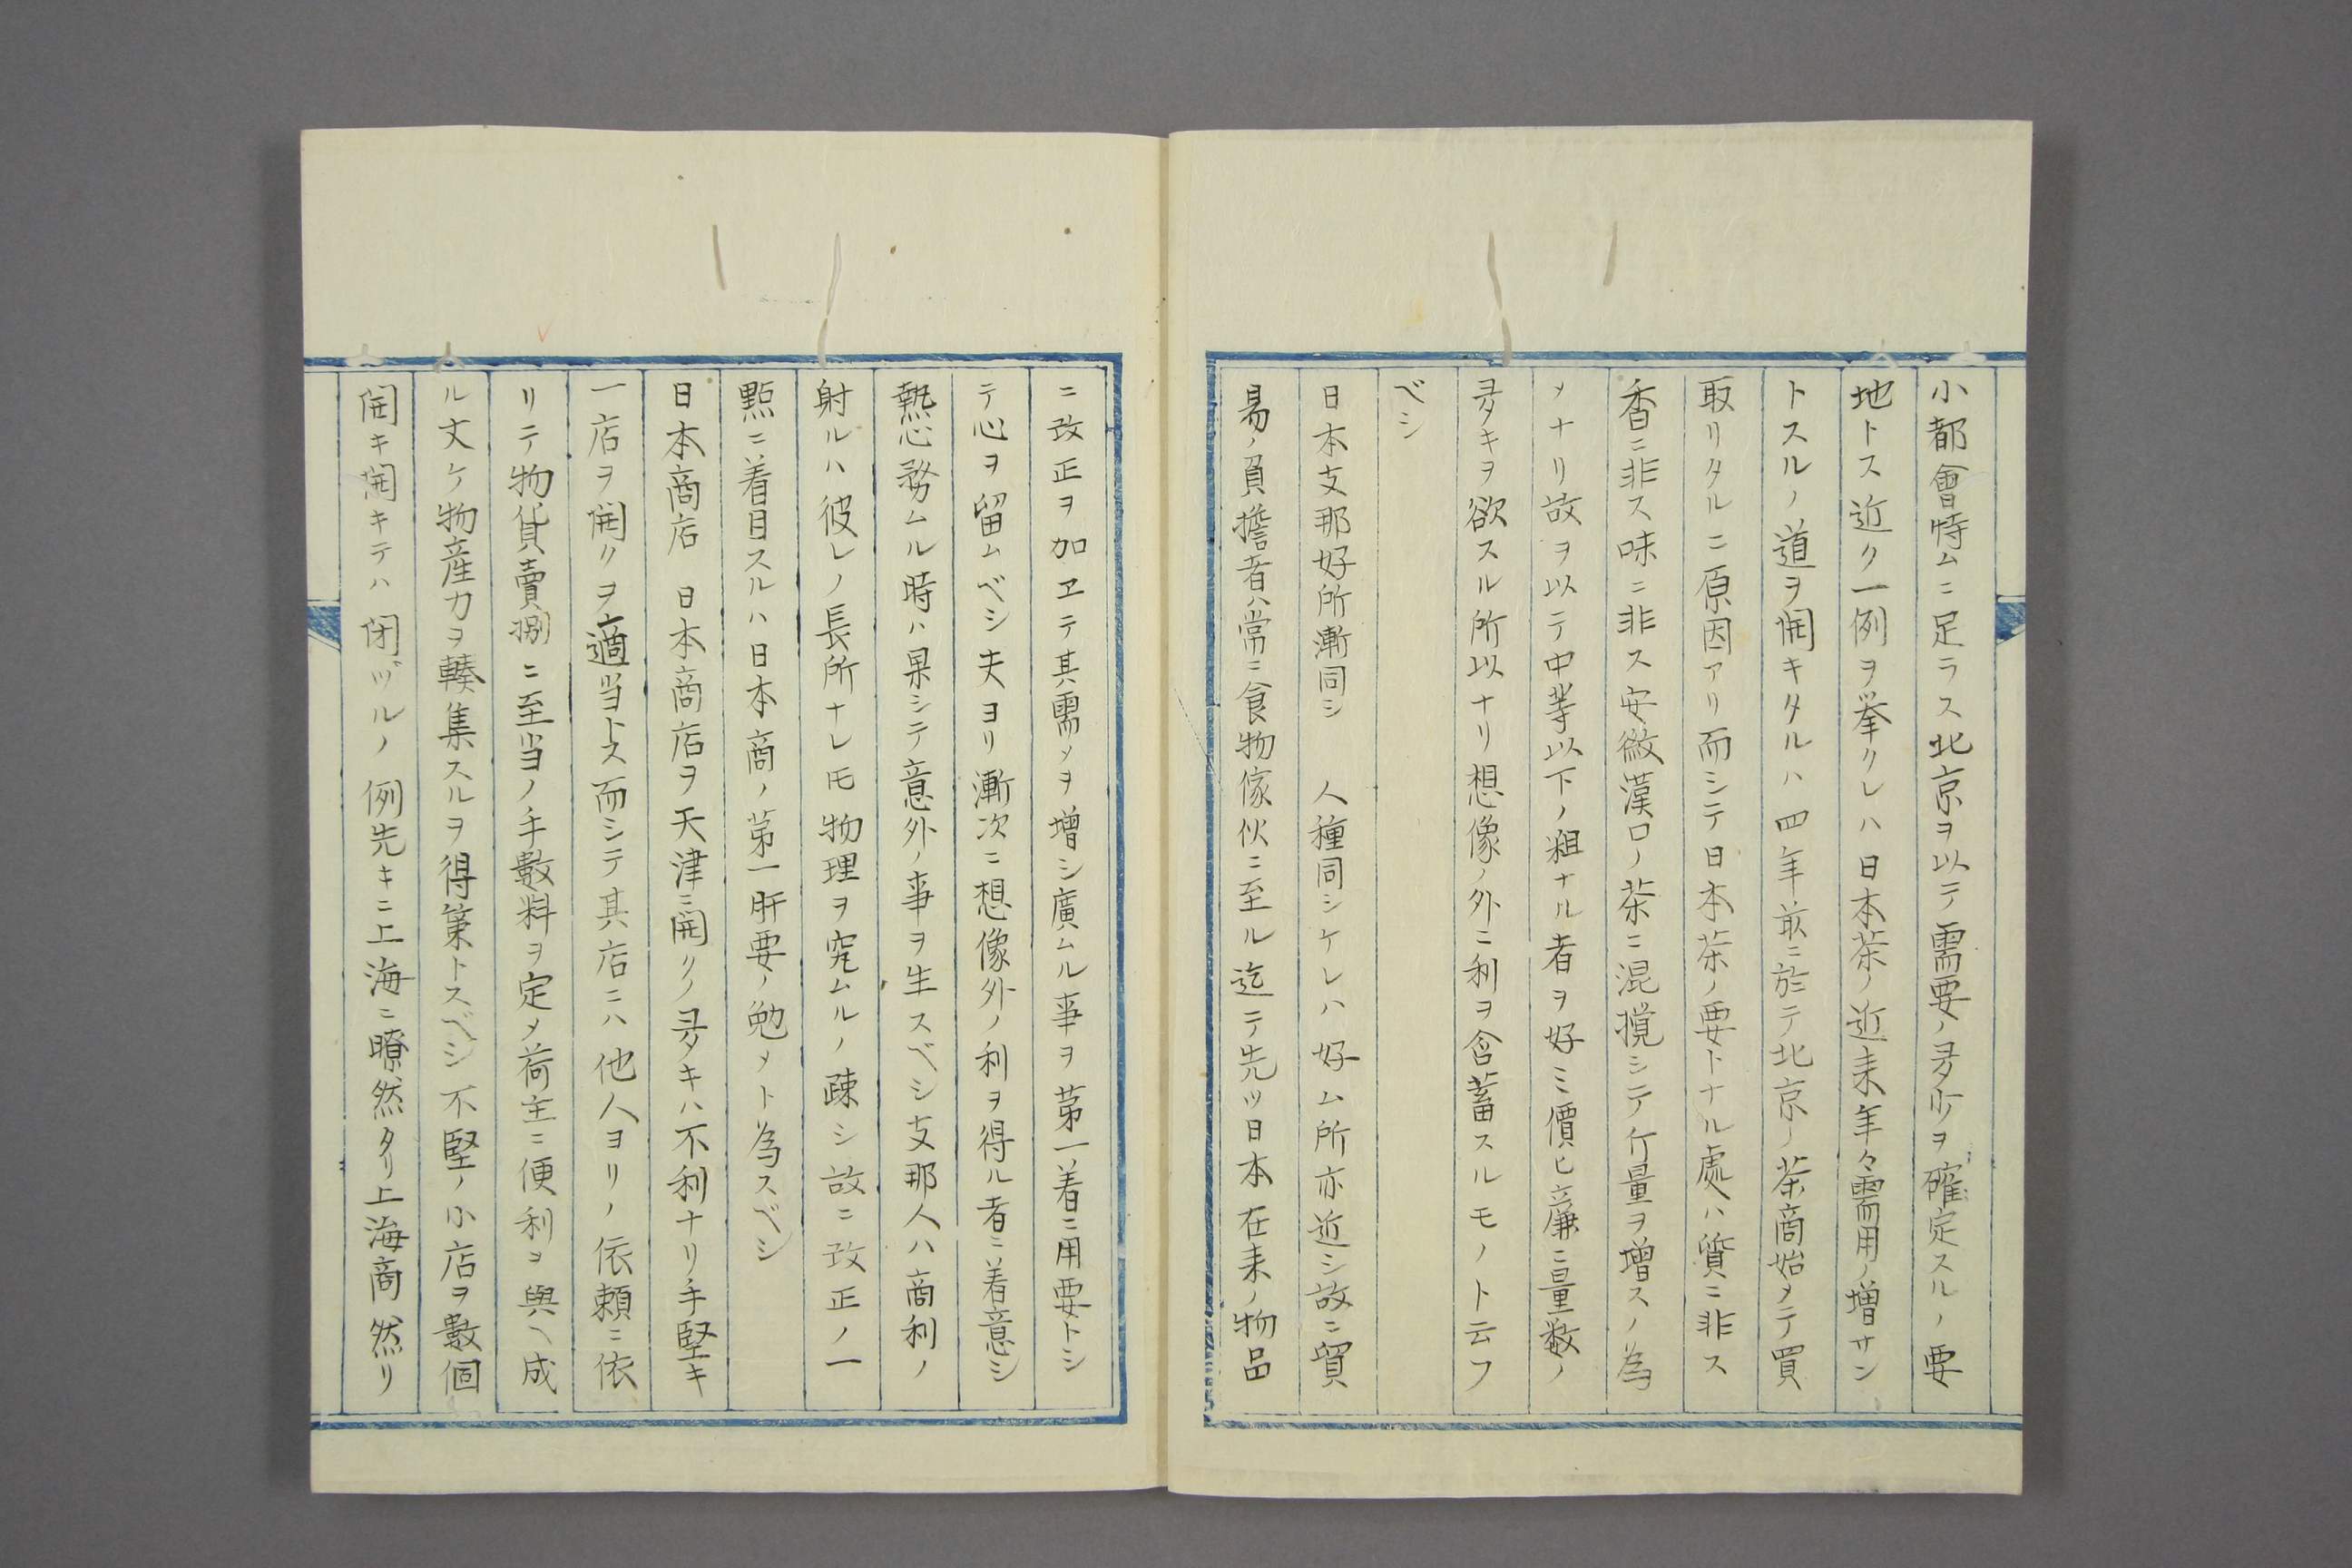 小都會恃ムニ足ラス北京ヲ以テ需要ノ多少ヲ確定スルノ要
地トス近ク一例ヲ挙クレハ日本茶ノ近来年々需用ノ増サン
トスルノ道ヲ開キタルハ四年前ニ於テ北京ノ茶商始メテ買
取リタルニ原因アリ而シテ日本茶ノ要トナル處ハ質ニ非ス
香ニ非ス味ニ非ス安徽漢口ノ茶ニ混攪シテ斤量ヲ増スノ為
メナリ故ヲ以テ中等以下ノ粗ナル者ヲ好ミ價ヒ廉ニ量数ノ
多キヲ欲スル所以ナリ想像ノ外ニ利ヲ含蓄スルモノト云フ
ベシ
日本支那好所漸同シ　人種同シケレハ好ム所亦近シ故ニ貿
易ノ負擔者ハ常ニ食物傢伙ニ至ル迄テ先ツ日本在来ノ物品
ニ改正ヲ加ヱテ其需メヲ増シ廣ムル事ヲ苐一着ニ用要トシ
テ心ヲ留ムベシ夫ヨリ漸次ニ想像外ノ利ヲ得ル者ニ着意シ
熱心務ムル時ハ果シテ意外ノ事ヲ生スベシ支那人ハ商利ノ
射ルハ彼レノ長所ナレ𪜈物理ヲ究ムルノ疎シ故ニ改正ノ一
點ニ着目スルハ日本商ノ苐一肝要ノ勉メト為スベシ
日本商店　日本商店ヲ天津ニ開クノ多キハ不利ナリ手堅キ
一店ヲ開クヲ適当トス而シテ其店ニハ他人ヨリノ依頼ニ依
リテ物貨賣捌ニ至当ノ手數料ヲ定メ荷主ニ便利ヲ與ヘ成
ル丈ケ物産力ヲ輳集スルヲ得策トスベシ不堅ノ小店ヲ數個
開キ開キテハ閉ヅルノ例先キニ上海ニ瞭然タリ上海商然リ